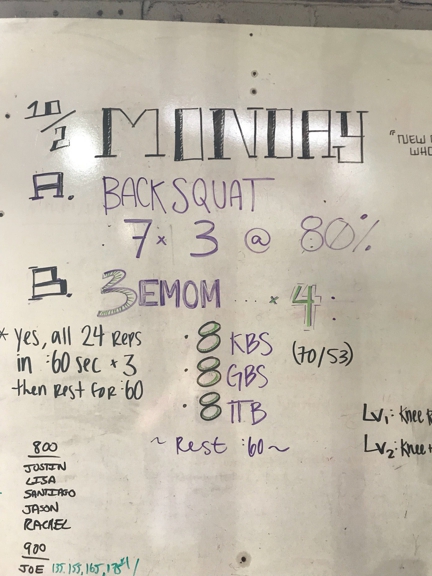 10/2 MONDAY
"NEW
WHO
A. BACK SQUAT
7 x 3 @ 80%
B. 3 EMOM .... x 4:
* Yes, all 24 Reps
in :60 sec x 3
then Rest for :60
· 8 KBS (70/53)
· 8 GBS
· 8 TTB
~ Rest :60 ~
Lv1: Knee
Lv2: Knee
800
JUSTIN
LISA
SANTIAGO
JASON
RACHEL
900
JOE 135, 155, 165, 175#/